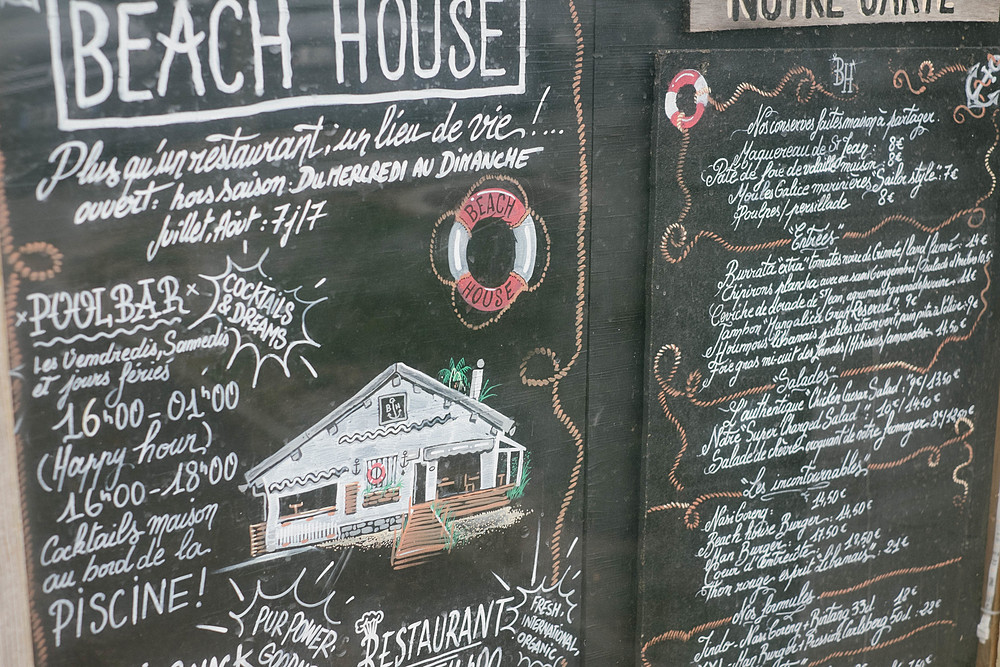 BEACH HOUSE
Plus qu'un restaurant, un lieu de vie!...
ouvert: hors saison: DU MERCREDI AU DIMANCHE
Juillet, Août: 7j/7
POOL BAR
COCKTAILS
& DREAMS
Les Vendredis, Samedis
et jours fériés
16H00-01H00
(Happy hour)
16H00-18H00
Cocktails maison
au bord de la
PISCINE!
BEACH
HOUSE
BH
PUR POWER
RESTAURANT
FRESH
INTERNATIONAL
ORGANIC
NOTRE CARTE
BH
Nos conserves faites maison à partager:
Maquereau de St Jean: 8€
Pâté de foie de volaille maison: 8€
Moules Galice marinières "Sailor style": 7€
Poulpes/persillade 8€
"Entrées"
Burrata "extra" tomates noires de Crimée/lard fumé: 14€
Chipirons plancha
Ceviche de dorade de St Jean, 11€
Jambon "Mangalica Gran Reserva" 9€
Houmous libanais pickles 9€
Foie gras mi-cuit des Landes/Hibiscus/amandes: 14.5€
"Salades"
L'authentique "Chicken Caesar Salad": 9€/13.50€
Notre "Super Charged Salad": 10€/14.50€
Salade de chèvre, croquant de notre fromager 8€/12.50€
"Les incontournables"
Nasi Goreng: 14.50€
Beach House Burger: 14.50€
Man Burger: 17.50€
Coeur d'entrecôte: 18.50€
Thon rouge, esprit libanais: 21€
"Nos formules"
Indo: Nasi Goreng + Bintang 33cl 18€
XXL: Man Burger + Pression Carlsberg 50cl: 22€